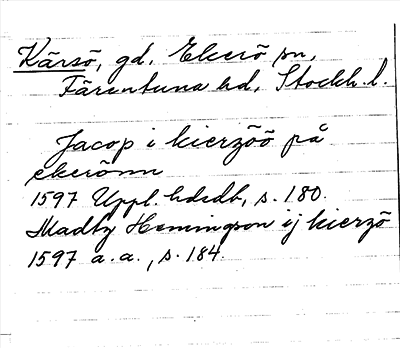 Kärsö, gd, Ekerö sn,
Färentuna hd, Stockh. l.
Jacop i kierzöö på
ekerönn
1597 Uppl. hdsdb, s. 180.
Madtz Hemingson ij kierzö
1597 a. a., s. 184.